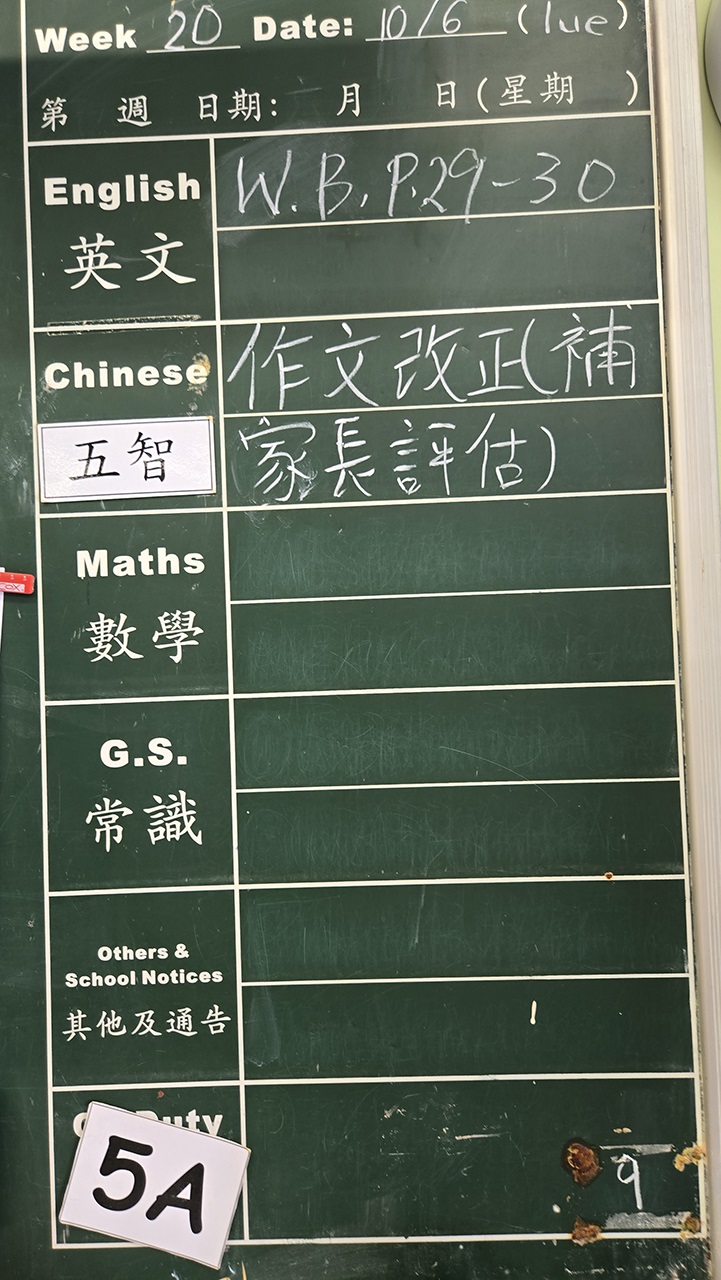 Week 20 Date: 10/6 (Tue)
第 週 日期: 月 日(星期 )
English
英文
W.B. P.29-30
Chinese
五智
作文改正(補
家長評估)
Maths
數學
G.S.
常識
Others &
School Notices
其他及通告
Duty
5A
9